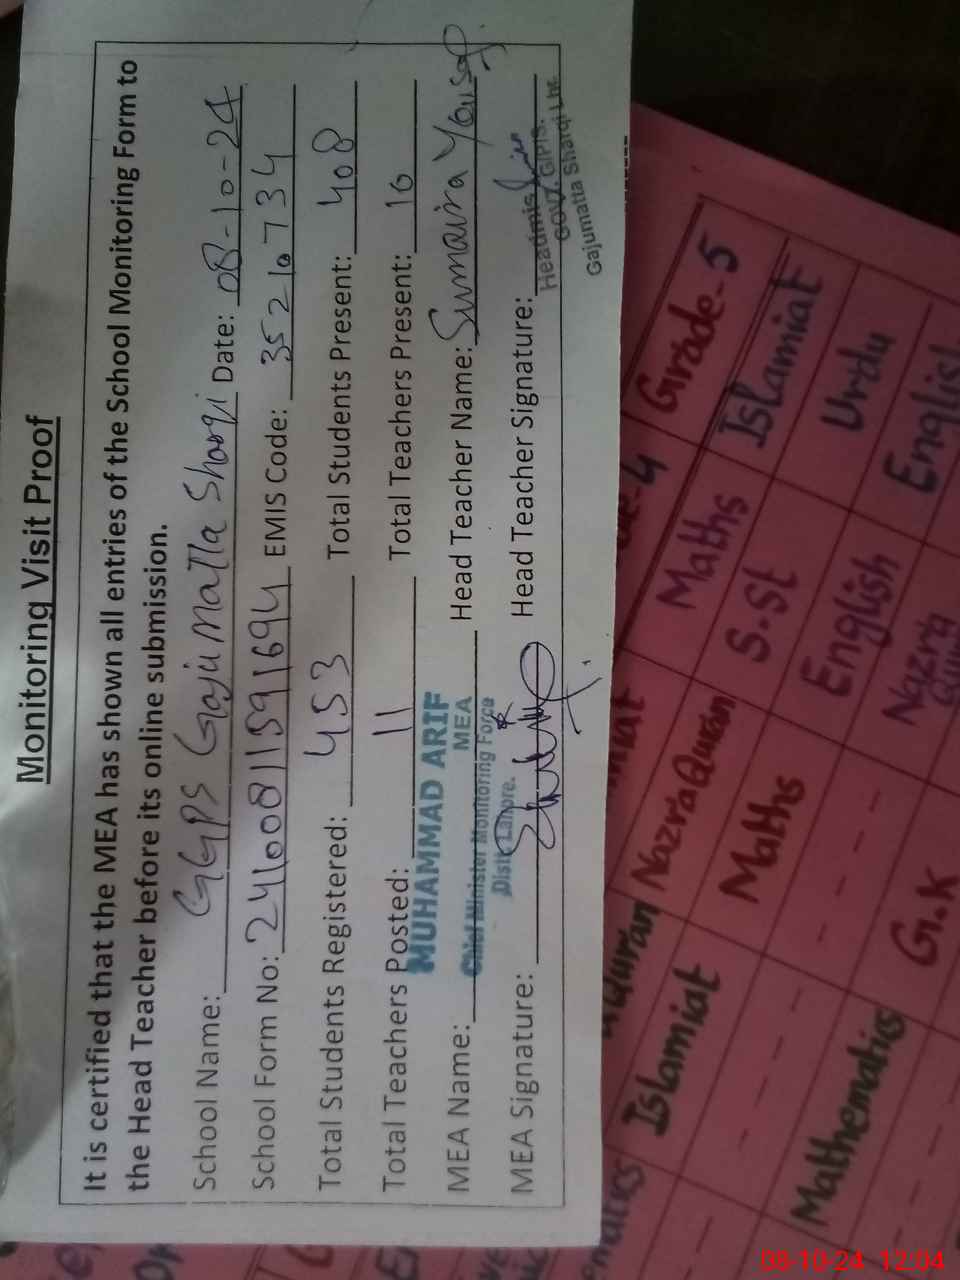 Monitoring Visit Proof
It is certified that the MEA has shown all entries of the School Monitoring Form to
the Head Teacher before its online submission.
School Name: GGPS Gaju Matta Sharqi Date: 08-10-24
School Form No: 24100811591694 EMIS Code: 35210734
Total Students Registered: 453 Total Students Present: 408
Total Teachers Posted: 11 Total Teachers Present: 10
MUHAMMAD ARIF
MEA Name: MEA Head Teacher Name: Sumaira Yousaf
Chief Minister Monitoring Force
Distt: Lahore.
MEA Signature: Head Teacher Signature:
Headmis
Govt. G/P/S.
Gajumatta Sharqi Lhr.
Grade-5
Maths Islamiat
Nazra Quran S.St Urdu
Islamiat Maths English English
Nazra
Mathematics G.K
08-10-24 12:04